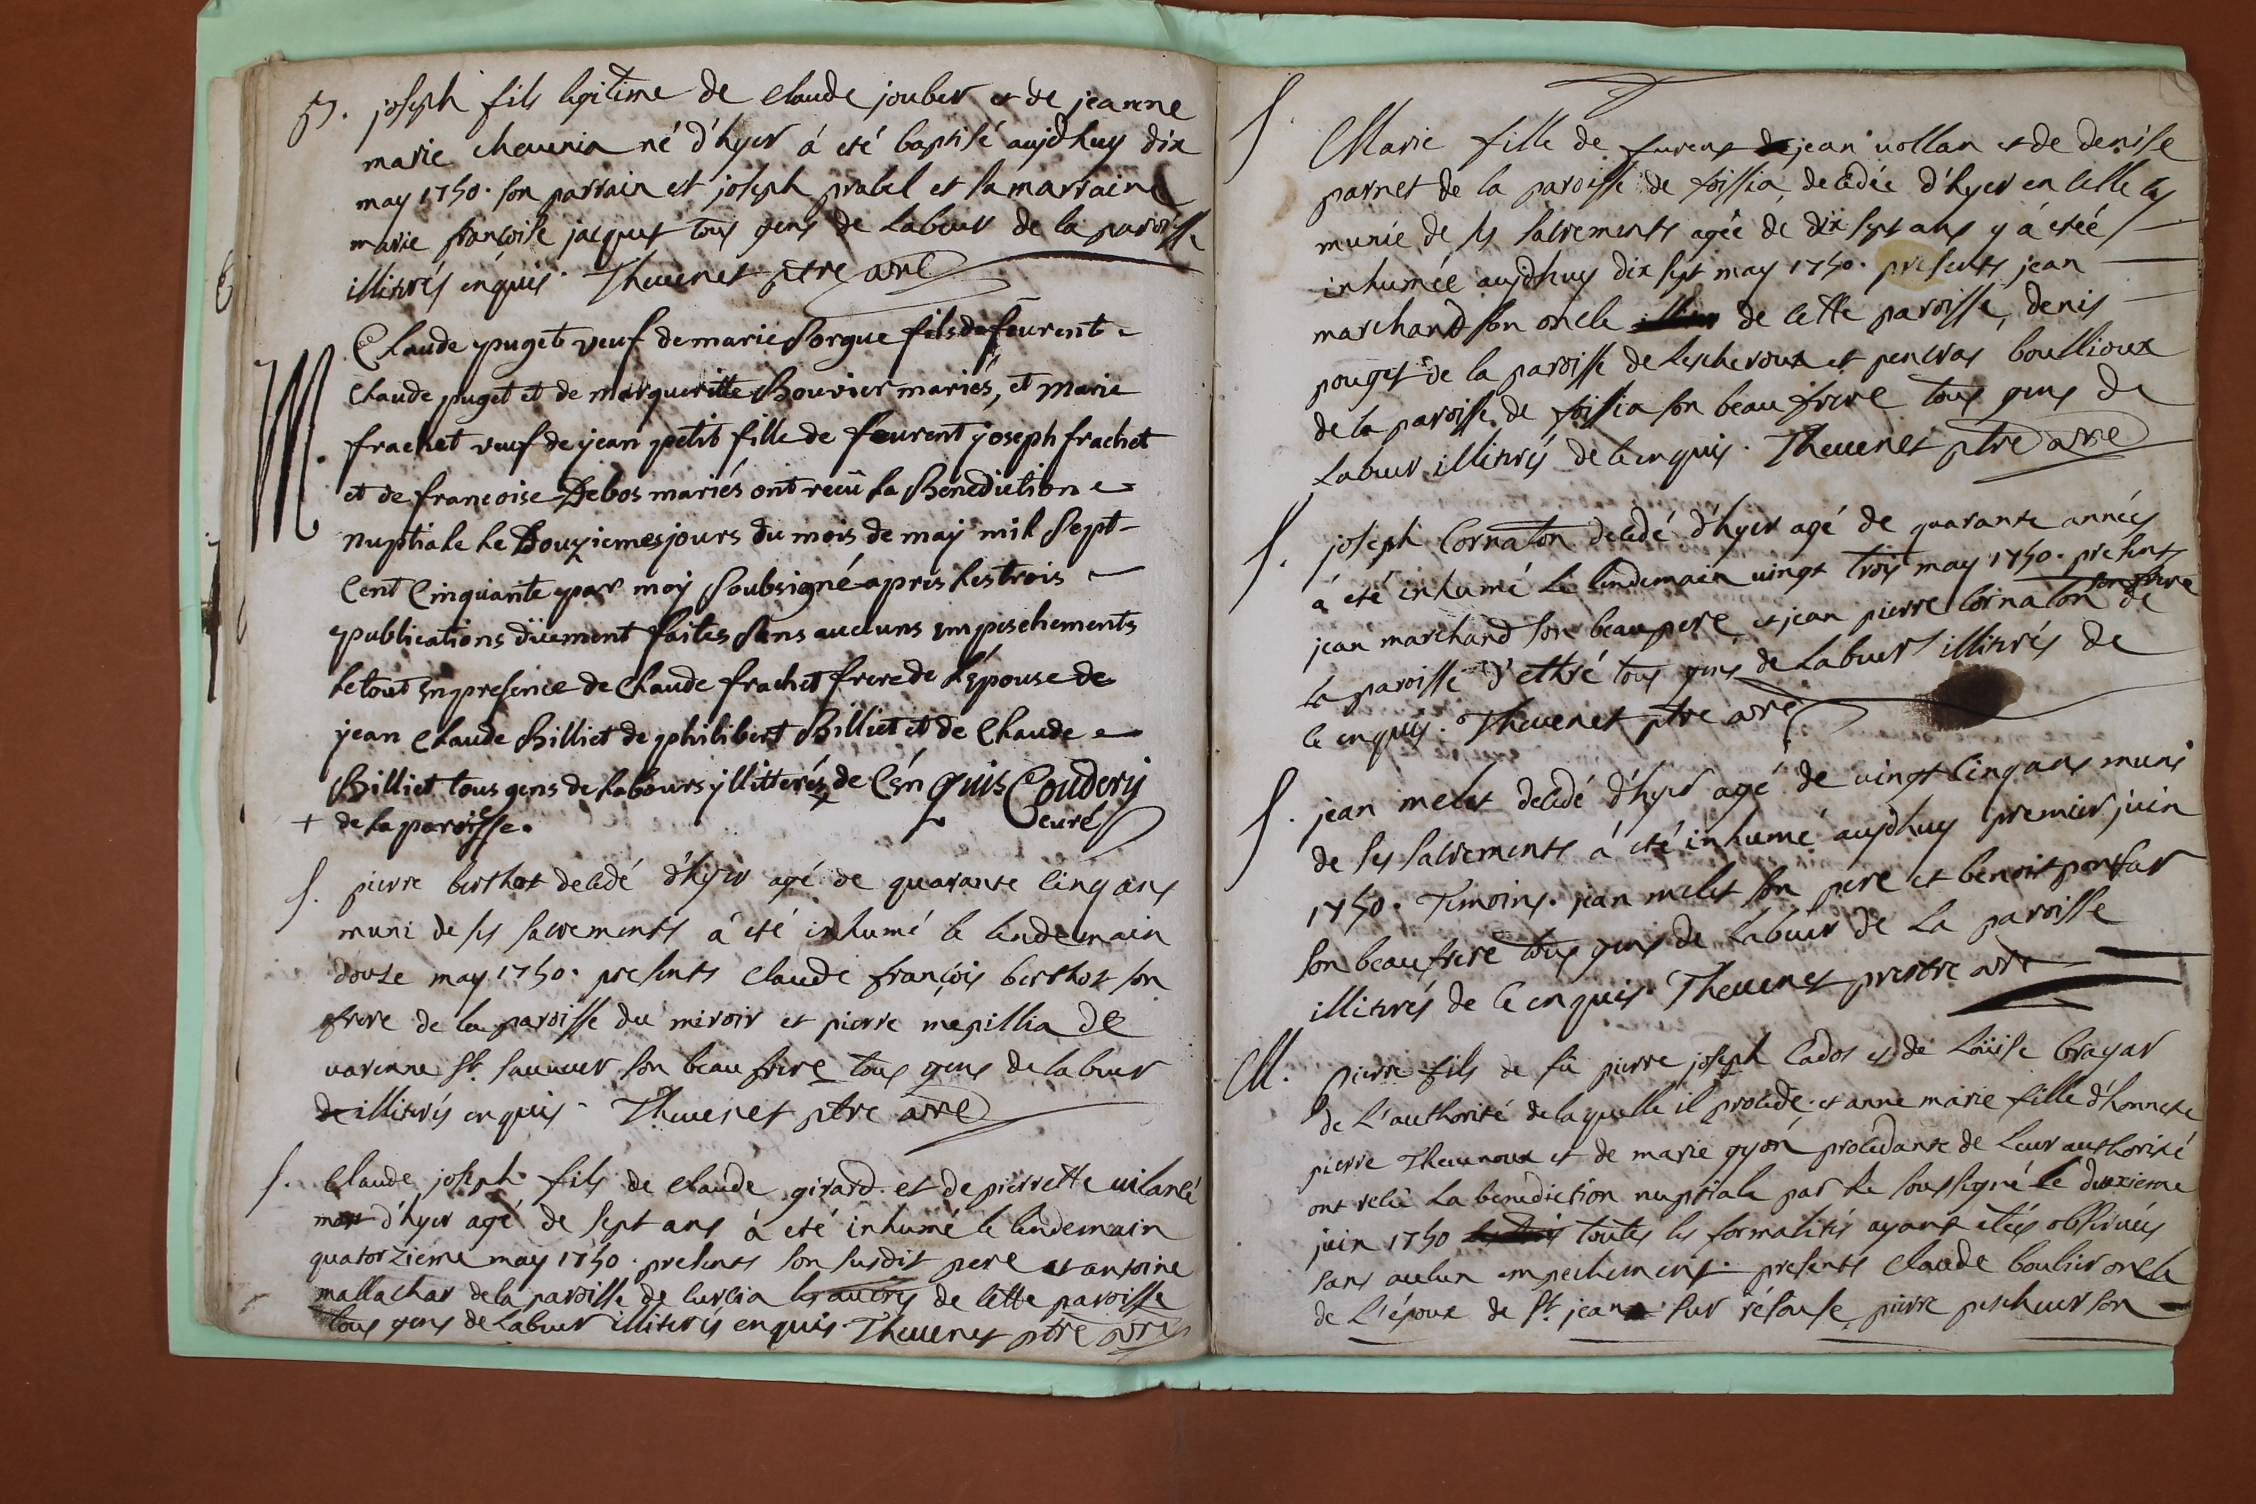 B. joseph fils legitime de claude jouber et de jeanne
marie chevenia né d'hyer á eté baptisé aujdhuy dix
may 1750. son parrain est joseph pralel et sa marraine
marie françoise jaquet tous gens de labeur de la paroisse
illiterés enquis. Thevenet ptre
M. Claude puget veuf de marie Sorgue fils de feurent
claude puget et de margueritte Bouvier mariés, et Marie
frachet veuf de jean petit fille de feurent joseph frachet
et de francoise Debos mariés ont recû la Benediction
nuptiale le Douziemes jours du mois de maÿ mil Sept
Cent Cinquante par moÿ Soubsigné apres les trois
publications düement faites Sans aucuns empeschements
le tout En presence de Claude frachet frere de L'épouse de
jean claude Billiet de philibert Billiet et de Claude
Billiet tous gens de labours yllitterés + de C'én quis Coudery
+ de la paroisse. curé
S. pierre berthot decedé d'hyer agé de quarante cinq ans
muni de ses sacrements á eté inhumé le lendemain
douze may 1750. presents claude françois berthot son
frere de la paroisse du miroir et pierre megillia de
varenne St. sauveur son beau frere tous gens de labeur
de illiterés enquis. Thevenet ptre
S. Claude joseph fils de claude girard et de pierrette
mort d'hyer agé de sept ans á eté inhumé le lendemain
quatorzieme may 1750. presents son susdit pere et antoine
mallachar de la paroisse de curcia les autres de cette paroisse
tous gens de labeur illiterés enquis. Thevenet ptre
S. Marie fille de furent de jean vollan et de denise
parnet de la paroisse de foissia, decedée d'hyer en celle cy
munie de ses sacrements agée de dix sept ans y á eteé
inhumée aujdhuy dix sept may 1750. presents jean
marchand son oncle de cette paroisse, denis
pouget de la paroisse de lescheroux et pencras boullioux
de la paroisse de foissia son beau frere tous gens de
labeur illiterés de ce enquis. Thevenet ptre
S. joseph Cornaton decedé d'hyer agé de quarante années
á eté inhumé le lendemain vingt trois may 1750. presents
jean marchand son beau pere et jean pierre cornaton son frere de
la paroisse d'ethré tous gens de labeur illiterés de
ce enquis. Thevenet ptre
S. jean melet decedé d'hyer agé de vingt cinq ans muni
de ses sacrements á eté inhumé aujdhuy premier juin
1750. Temoins. jean melet son pere et benoit
son beau frere tous gens de labeur de la paroisse
illiterés de ce enquis. Thevenet prestre
M. pierre fils de fû pierre joseph Cados et de Loüise brayar
de l'authorité de laquelle il procede. et anne marie fille d'honnete
pierre Thevenoux et de marie gyon, procedante de leur authorité
ont recû la benediction nuptiale par le soussigné le deuxieme
juin 1750 toutes les formalités ayant etées observées
sans aucun empechement. presents claude boulier oncle
de L'époux de St. jean sur résouse, pierre pescheur son